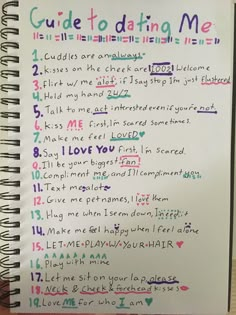 Guide to dating Me
1. Cuddles are an always
2. kisses on the cheek are 100% Welcome
3. Flirt w/ me alot, if I say stop I'm just flustered
4. Hold my hand 24/7
5. Talk to me, act interested even if you're not.
6. Kiss ME first, I'm scared sometimes
7. Make me feel LOVED
8. Say I LOVE YOU first, I'm scared.
9. I'll be your biggest fan
10. Compliment me, and I'll compliment you.
11. Text me alot
12. Give me pet names, I love them
13. Hug me when I seem down, I need it
14. Make me feel happy when I feel alone
15. LET ME PLAY W/ YOUR HAIR
16. Play with mine
17. Let me sit on your lap please
18. Neck & cheek & forehead kisses
19. Love Me for who I am